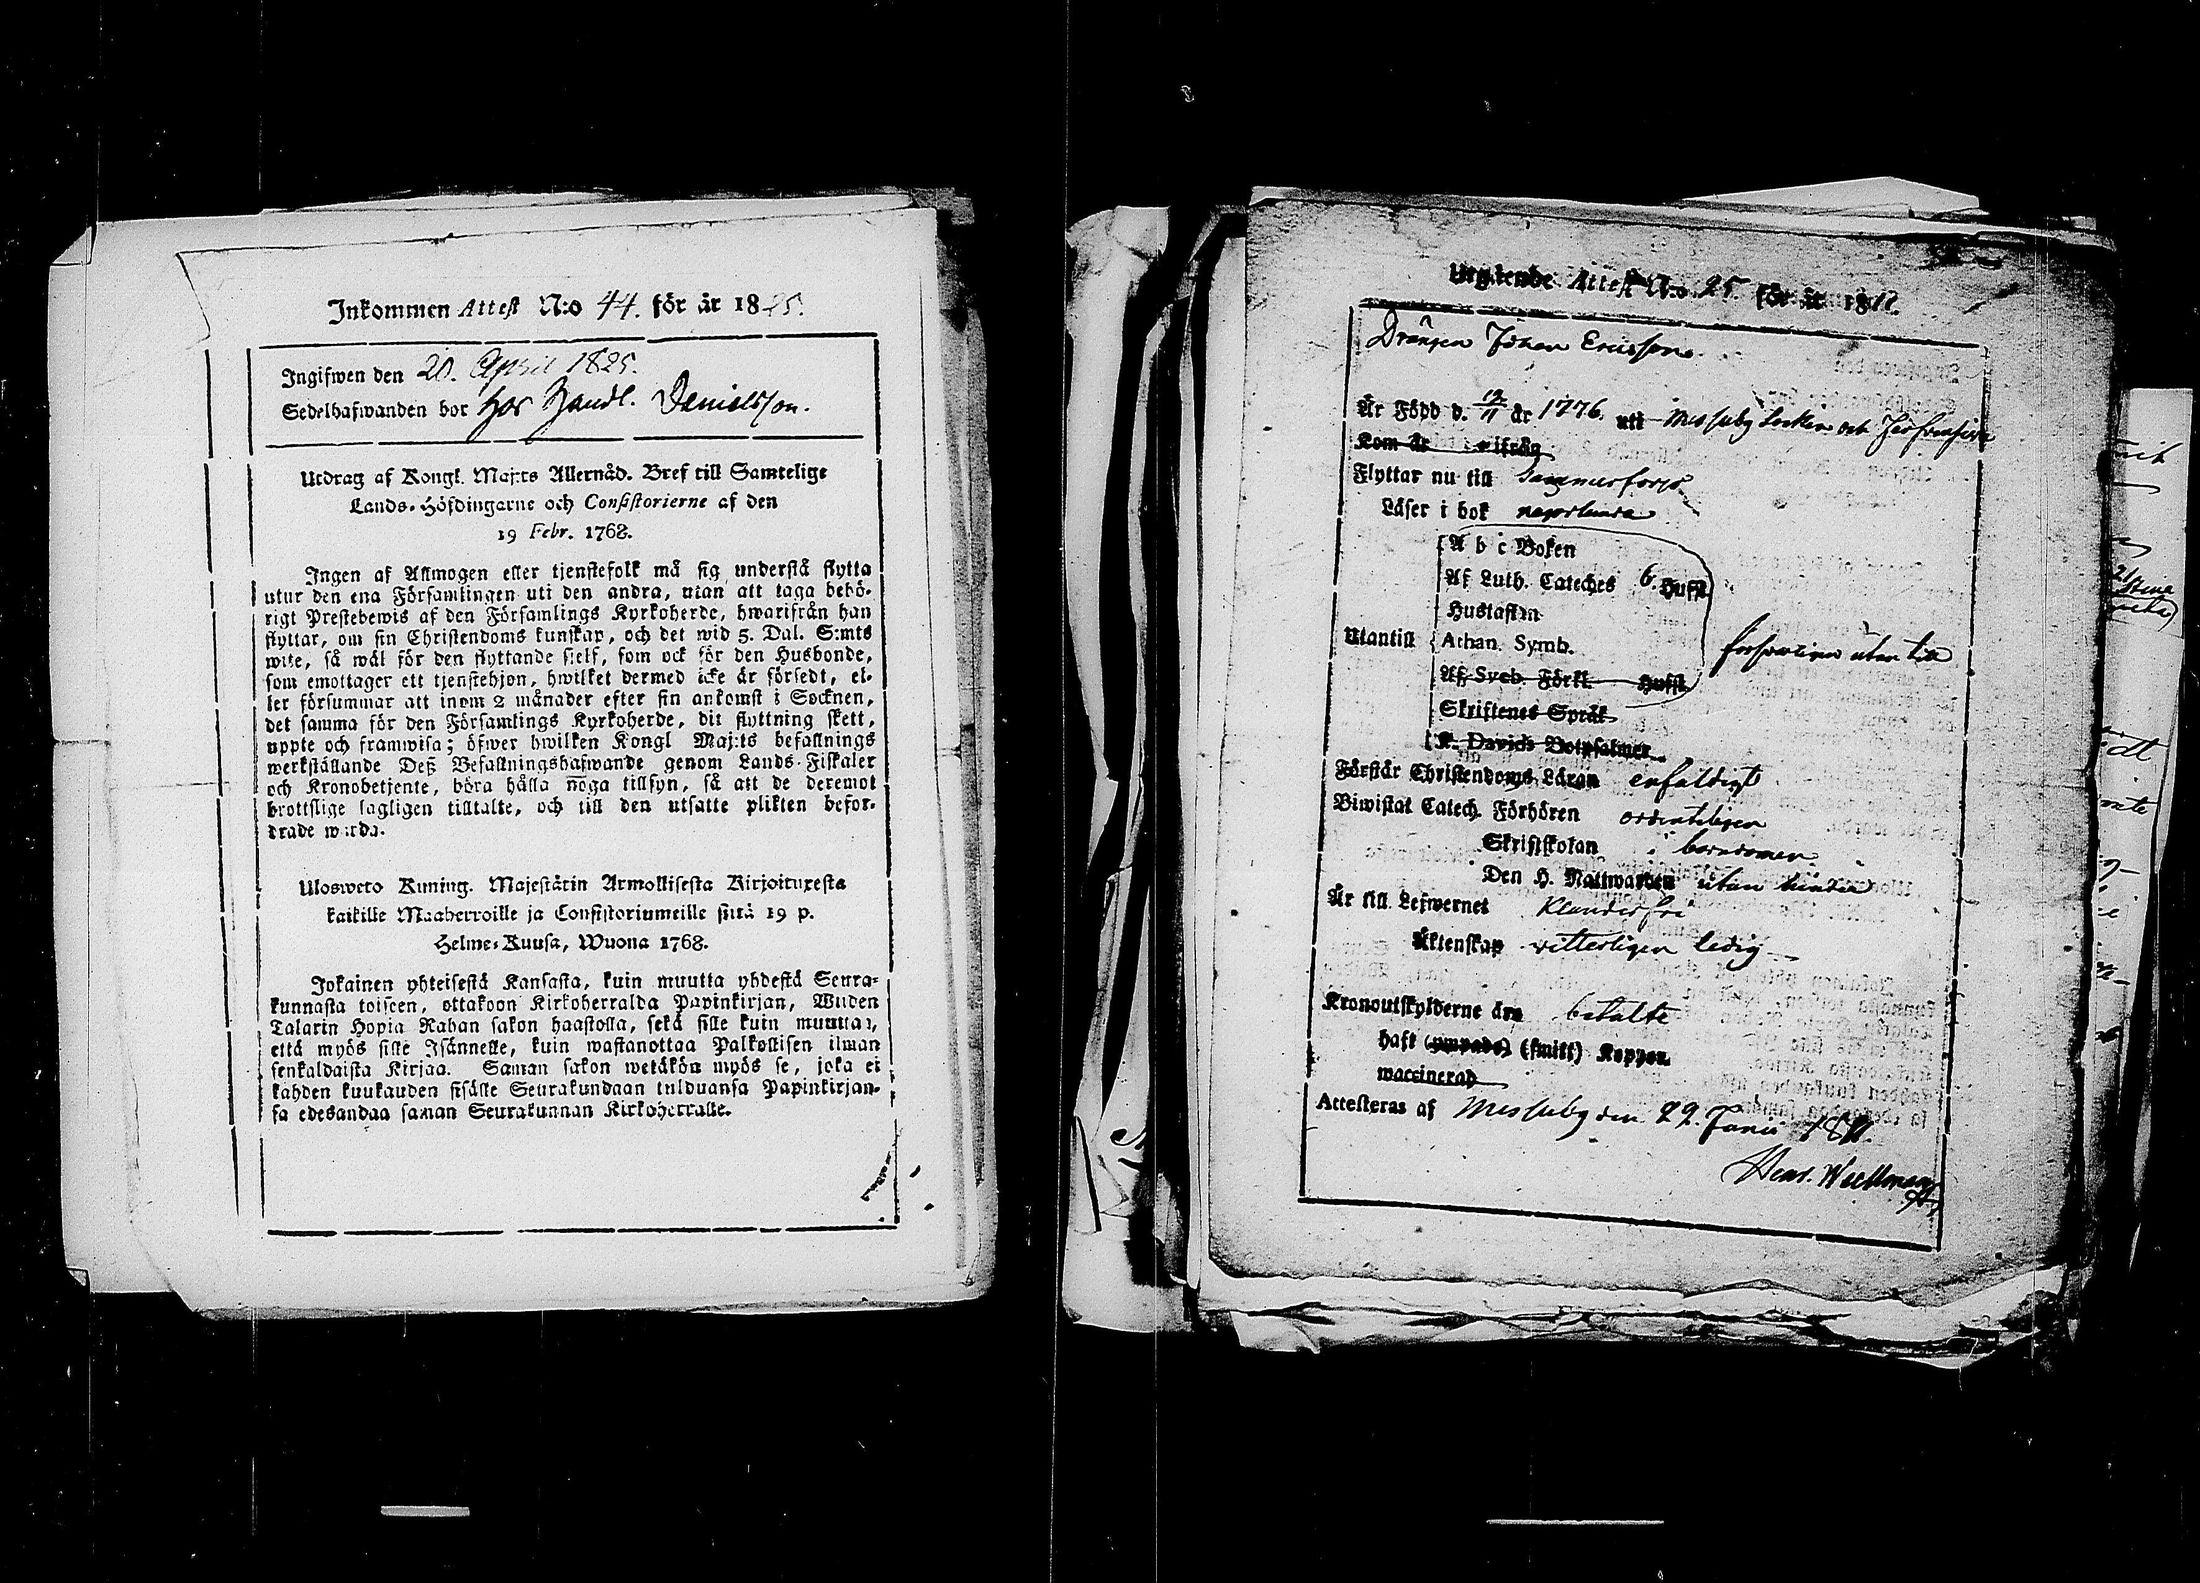 Inkommen Attest N:o 44. för år 1825.
Ingifwen den 20. April 1825.
Sedelhafwanden bor hos Handl. Danielsson.
Utdrag af Kongl. Maj:ts Allernåd. Bref till Samtelige
Lands-Höfdingarne och Consistorierne af den
19 Febr. 1768.
Ingen af Allmogen eller tjenstefolk må sig understå flytta
utur den ena Församlingen uti den andra, utan att taga behö-
rigt Prestebewis af den Församlings Kyrkoherde, hwarifrån han
flyttar, om sin Christendoms kunskap, och det wid 5. Dal. S:mts
wite, så wäl för den flyttande sielf, som ock för den Husbonde,
som emottager ett tjenstehjon, hwilket dermed icke är försedt, el-
ler försummar att inom 2 månader efter sin ankomst i Socknen,
det samma för den Församlings Kyrkoherde, dit flyttning skett,
uppte och framwisa; öfwer hwilken Kongl Maj:ts befallnings
werkställande Deß Befallningshafwande genom Lands-Fiskaler
och Kronobetjente, böra hålla noga tillsyn, så att de deremot
brottslige lagligen tilltalte, och till den utsatte plikten befor-
drade warda.
Ulosweto Kuning. Majestätin Armollisesta Kirjoituxesta
kaikille Maaherroille ja Consistoriumeille siitä 19 p.
Helme-Kuusa, Wuona 1768.
Jokainen yhteisestä Kansasta, kuin muutta yhdestä Seura-
kunnasta toiseen, ottakoon Kirkoherralda Papinkirjan, Wiiden
Talarin Hopia Rahan sakon haastolla, sekä sille kuin muuttaa,
että myös sille Isännelle, kuin wastanottaa Palkollisen ilman
senkaldaista Kirjaa. Saman sakon wetäkön myös se, joka ei
kahden kuukauden sisälle Seurakundaan tulduansa Papinkirjan-
sa edesandaa saman Seurakunnan Kirkoherralle.
Utgående Attest N:o 25. för år 1811.
Drängen Johan Ericsson.
Är Född d. 12/11 år 1776. uti Messuby Socken och
Kom år ifrån
Flyttar nu till Tammerfors
Läser i bok någorlunda
A b c Boken
Af Luth. Cateches 6. Hufst.
Hustaflan
Utantill Athan. Symb. utan till
Af Sveb. Förkl. Hufst.
Skriftenes Språk
K. Davids Botpsalmer
Förstår Christendoms Läran enfaldigt
Biwistat Catech. Förhören ordenteligen
Skriftskolan i barndomen
Den H. Nattwarden utan hinder
Är till Lefwernet Klanderfri
Äktenskap witterligen ledig
Kronoutskylderne äro betalte
haft (ympade) (smitt) Koppor.
waccinerad
Attesteras af Messuby den 29. Junii 1811.
Henr. Wallman